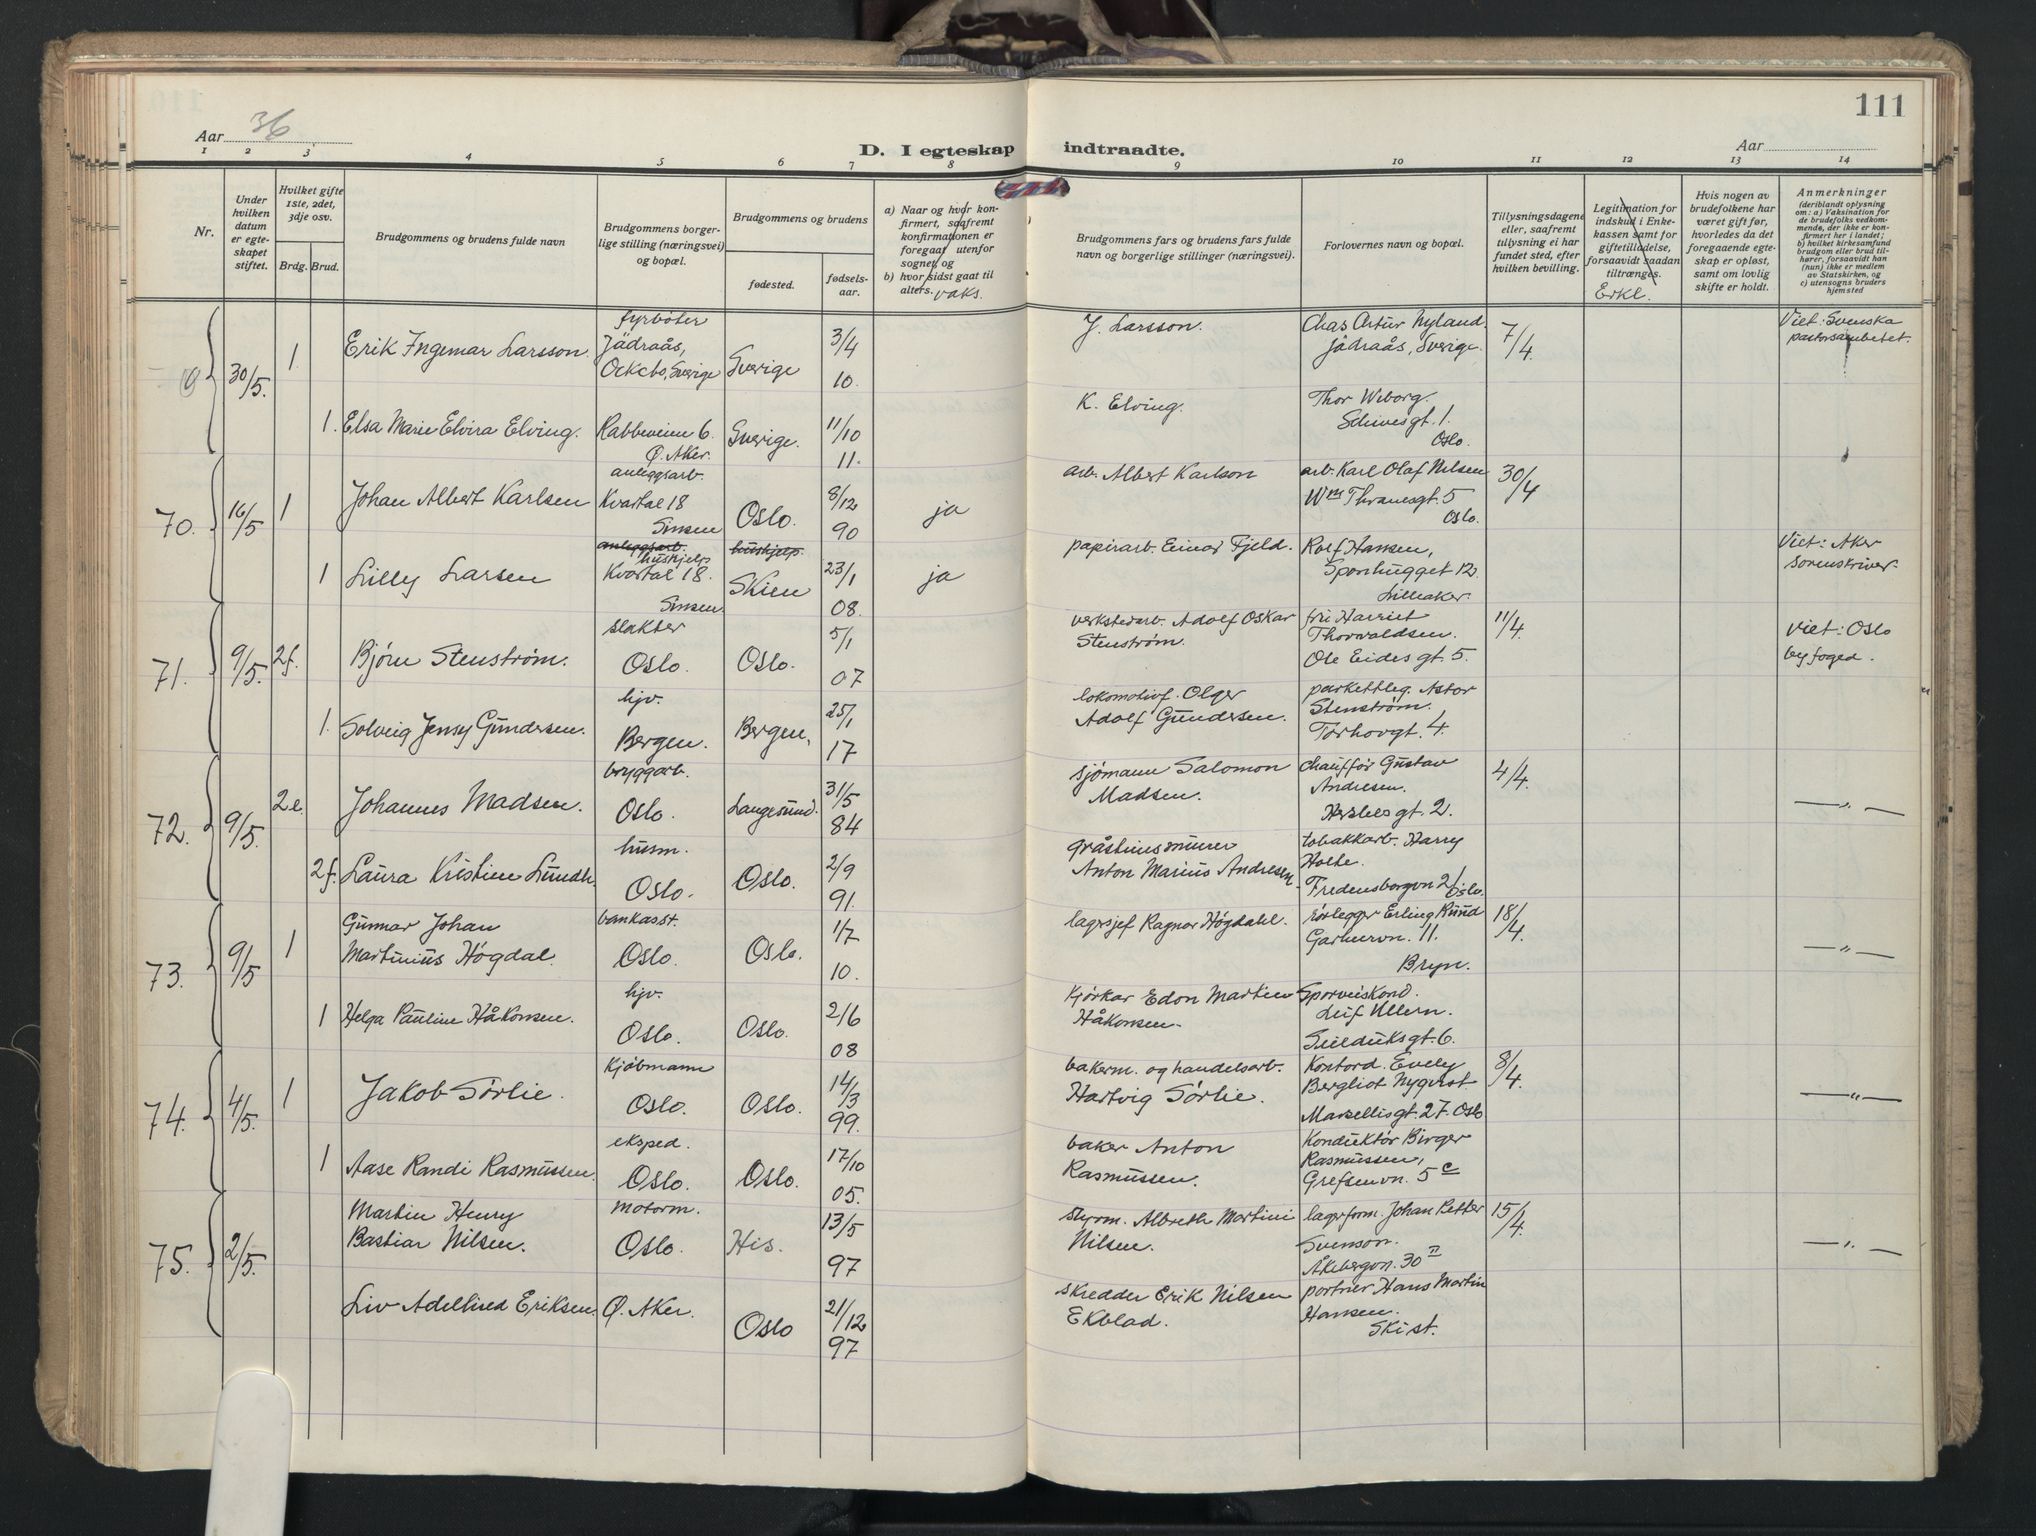 111
Aar 36
D. I egteskap indtraadte.
Aar
1 2 3 4 5 6 7 8 9 10 11 12 13 14
Nr.
Under hvilken datum er egteskapet stiftet.
Hvilket gifte 1ste, 2det, 3dje osv.
Brdg. Brud.
Brudgommens og brudens fulde navn
Brudgommens borgerlige stilling (næringsvei) og bopæl.
Brudgommens og brudens
fødested.
fødselsaar.
a) Naar og hvor konfirmert, saafremt konfirmationen er foregaat utenfor sognet, og
b) hvor sidst gaat til alters. vaks.
Brudgommens fars og brudens fars fulde navn og borgerlige stillinger (næringsvei).
Forlovernes navn og bopæl.
Tillysningsdagene eller, saafremt tillysning ei har fundet sted, efter hvilken bevilling.
Legitimation for indskud i Enkekassen samt for giftetilladelse, forsaavidt saadan tiltrænges.
Erkl.
Hvis nogen av brudefolkene har været gift før, hvorledes da det foregaaende egteskap er opløst, samt om lovlig skifte er holdt.
Anmerkninger
(deriblandt oplysning om: a) Vaksination for de brudefolks vedkommende, der ikke er konfirmert her i landet;
b) hvilket kirkesamfund brudgom eller brud tilhører, forsaavidt han (hun) ikke er medlem av Statskirken, og
c) utensogns bruders hjemsted
0 30/5. 1 Erik Ingemar Larsson. fyrbøter Jädraås, Ockebo, Sverige Sverige 3/4 10. J. Larsson. Chas Artur Nyland. Jädraås, Sverige. 7/4. Viet: Svenska pastorsembetet.
1. Elsa Marie Elvira Elving. Rabbeveien 6. Ø. Aker. Sverige. 11/10 11. K. Elving. Thor Weborg. Schivesgt. 1. Oslo.
70. 16/5 1 Johan Albert Karlsen anleggsarb. Kvartal 18 Sinsen Oslo. 8/12 90 ja arb. Albert Karlson arb. Karl Olaf Nilsen Wm Thranesgt. 5 Oslo. 30/4
1 Lilly Larsen anleggsarb. hushjelp Kvartal 18. Sinsen. hushjelp. Skien 23/1 08. ja papirarb. Einar Fjeld. Rolf Hansen, Sponhugget 12. Lilleaker. Viet: Aker sorenskriver.
71. 9/5. 2f. Bjørn Stenstrøm. slakter Oslo. Oslo. 5/1 07 verkstedarb. Adolf Oskar Stenstrøm. frk Harriet Thorvaldsen. Ole Eides gt. 5. 11/4. Viet: Oslo byfoged.
1. Solveig Jensy Gundersen. hjv. Bergen. Bergen. 25/1 17 lokomotivf. Olger Adolf Gundersen. parkettleg. Astor Stenstrøm. Torhovgt. 4.
72. 9/5. 2e. Johannes Madsen. bryggarb. Oslo. Langesund. 31/5 84 sjømann Salomon Madsen. chauffør Gustav Andresen. Herslebsgt. 2. 4/4. — " —
2f. Laura Kristine Lundh. husm. Oslo. Oslo. 2/9 91. gråstensmurer Anton Marius Andresen. tobakkarb. Harry Holte. Fredensborgvn 21 Oslo.
73. 9/5 1 Gunnar Johan Martinius Høgdal. bankasst. Oslo. Oslo. 1/7 10. lagersjef Ragnar Høgdahl. rørlegger Erling Ruud Garverivn. 11. Bryn. 18/4. — " —
1 Helga Pauline Håkonsen. hjv. Oslo. Oslo. 2/6 08 kjørkar Edon Martin Håkonsen. Sporveiskond. Leif Ullern. Seilduksgt. 6.
74. 4/5. 1 Jakob Sørlie. kjøbmann Oslo. Oslo. 14/3 99. bakerm. og handelsarb. Hartvig Sørlie. Kontord. Evely Bergliot Nyqvist. Marsellisgt. 27. Oslo 8/4. — " —
1 Aase Randi Rasmussen eksped. Oslo. Oslo. 17/10 05. baker Anton Rasmussen. Konduktør Birger Rasmussen, Grefsenvn. 5 c
75. 2/5. Martin Henry Bastian Nilsen. motorm. Oslo. His. 13/5 97 styrm. Albreth Martini Nilsen. lagerform. Johan Petter Svenson. Åkebergvn. 30 II 15/4. — " —
Liv Adelheid Eriksen. Ø. Aker. Oslo 21/12 97 skredder Erik Nilsen Ekblad. portner Hans Martin Hansen. Ski st.